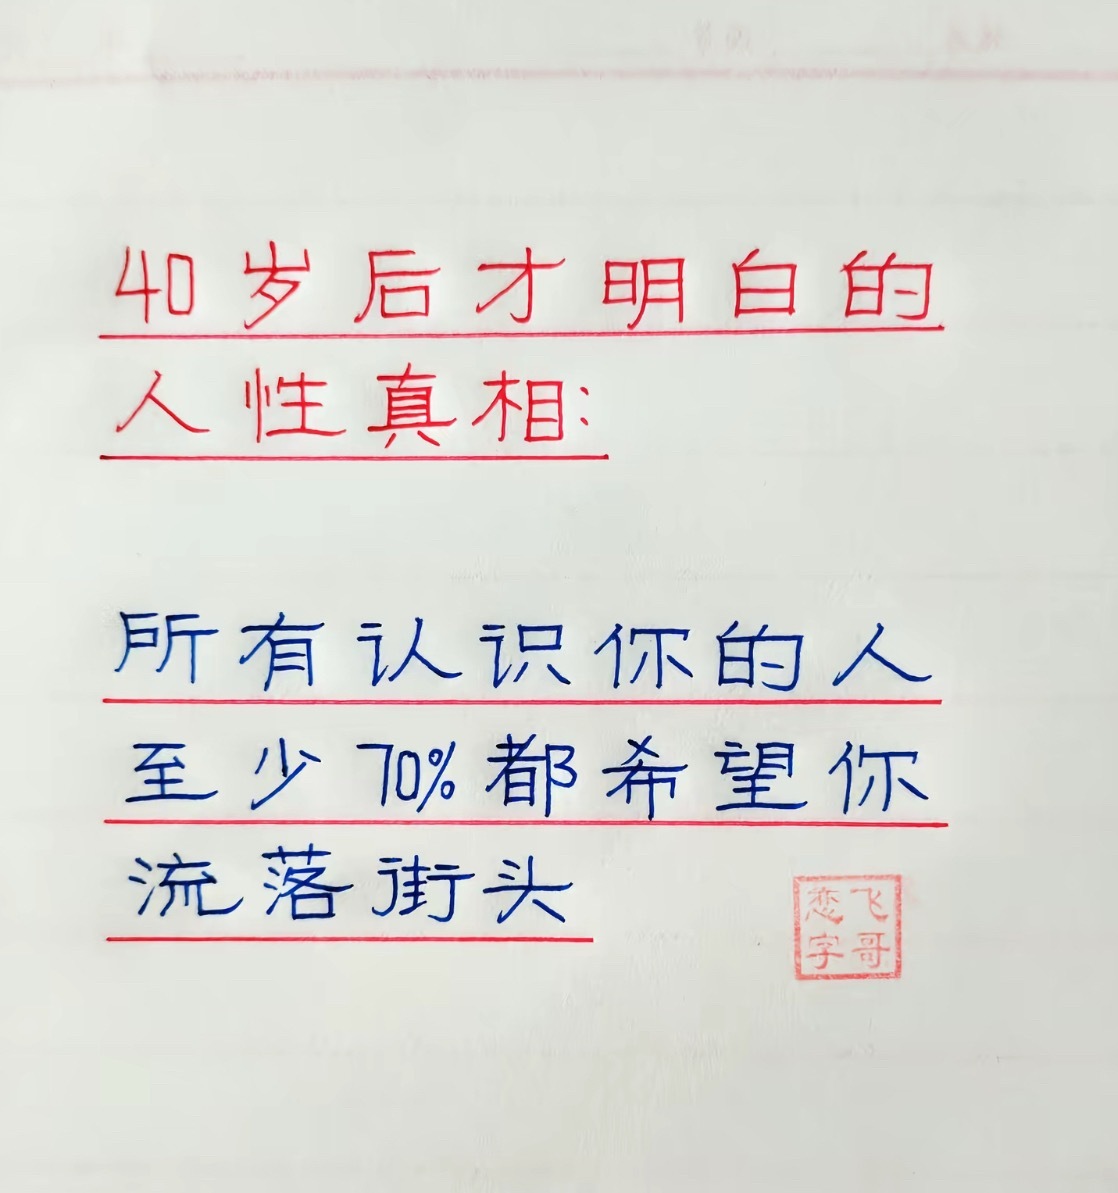 40岁后才明白的
人性真相:
所有认识你的人
至少70%都希望你
流落街头
飞哥
恋字